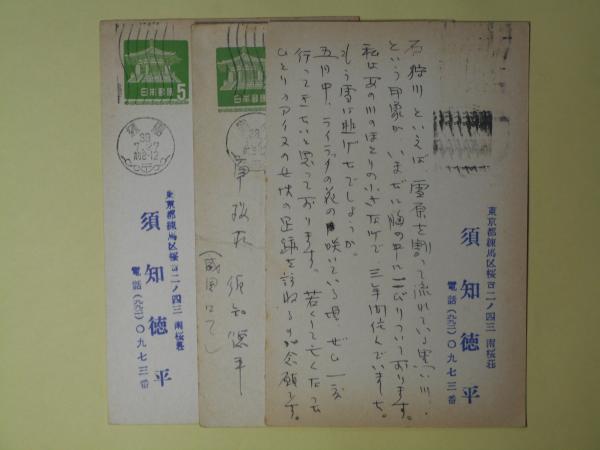 東京都練馬区桜台二ノ四三 南桜荘
須知徳平
電話 〇九七三番
石狩川といえば、雪原を割って流れている黒い川、
という印象が、いまだに胸の中にこびりついております。
私はあの川のほとりの小さな町で、三年間住んでいました。
もう雪は逃げたでしょうか。
五月中、ライラックの花の咲いている頃、ぜひ一度
行ってきたいと思っております。若くして亡くなった
ひとりのアイヌの女性の足跡を訪ねるのが念願です。
日本郵便
須知徳平
(盛岡にて)
日本郵便 5
39
7.-7
前8-12
東京都練馬区桜台二ノ四三 南桜荘
須知徳平
電話 〇九七三番